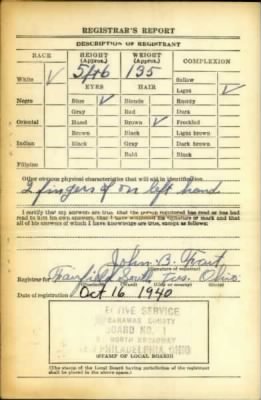 REGISTRAR'S REPORT
DESCRIPTION OF REGISTRANT
RACE HEIGHT (Approx.) WEIGHT (Approx.) COMPLEXION
5 ft 6 135
White ✓ Sallow
EYES HAIR Light ✓
Negro Blue ✓ Blonde Ruddy
Gray Red Dark
Oriental Hazel Brown ✓ Freckled
Brown Black Light brown
Indian Black Gray Dark brown
Bald Black
Filipino
Other obvious physical characteristics that will aid in identification
2 fingers left hand
I certify that my answers are true; that the person registered has read or has had
read to him his own answers; that I have witnessed his signature or mark and that
all of his answers of which I have knowledge are true, except as follows:
John B.
(Signature of registrar)
Registrar for Fairfield South Tus. Ohio
(City or county) (State)
Date of registration Oct 16 1940
TIVE SERVICE
CARAWAS COUNTY
BOARD NO.
NORTH BROADWAY
PHILADELPHIA, OHIO
(STAMP OF LOCAL BOARD)
(The stamp of the Local Board having jurisdiction of the registrant
shall be placed in the above space.)